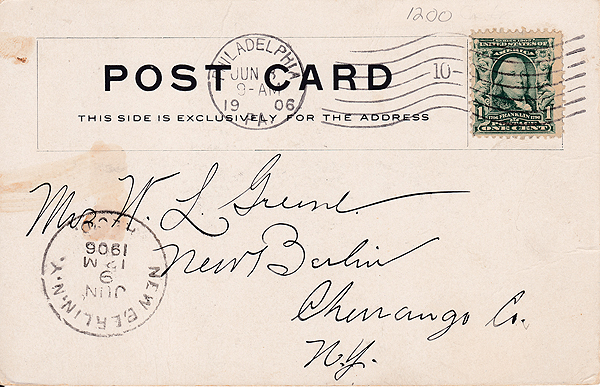 1200
PHILADELPHIA
JUN 8
9-AM
19 06
PA.
10-
SERIES 1902
UNITED STATES OF
AMERICA
1706 FRANKLIN 1790
1 ONE CENT 1
POST CARD
THIS SIDE IS EXCLUSIVELY FOR THE ADDRESS
Mrs W. L. Greene.
New Berlin
Chenango Co.
N.Y.
NEW BERLIN, N.Y.
JUN
9
M
1906